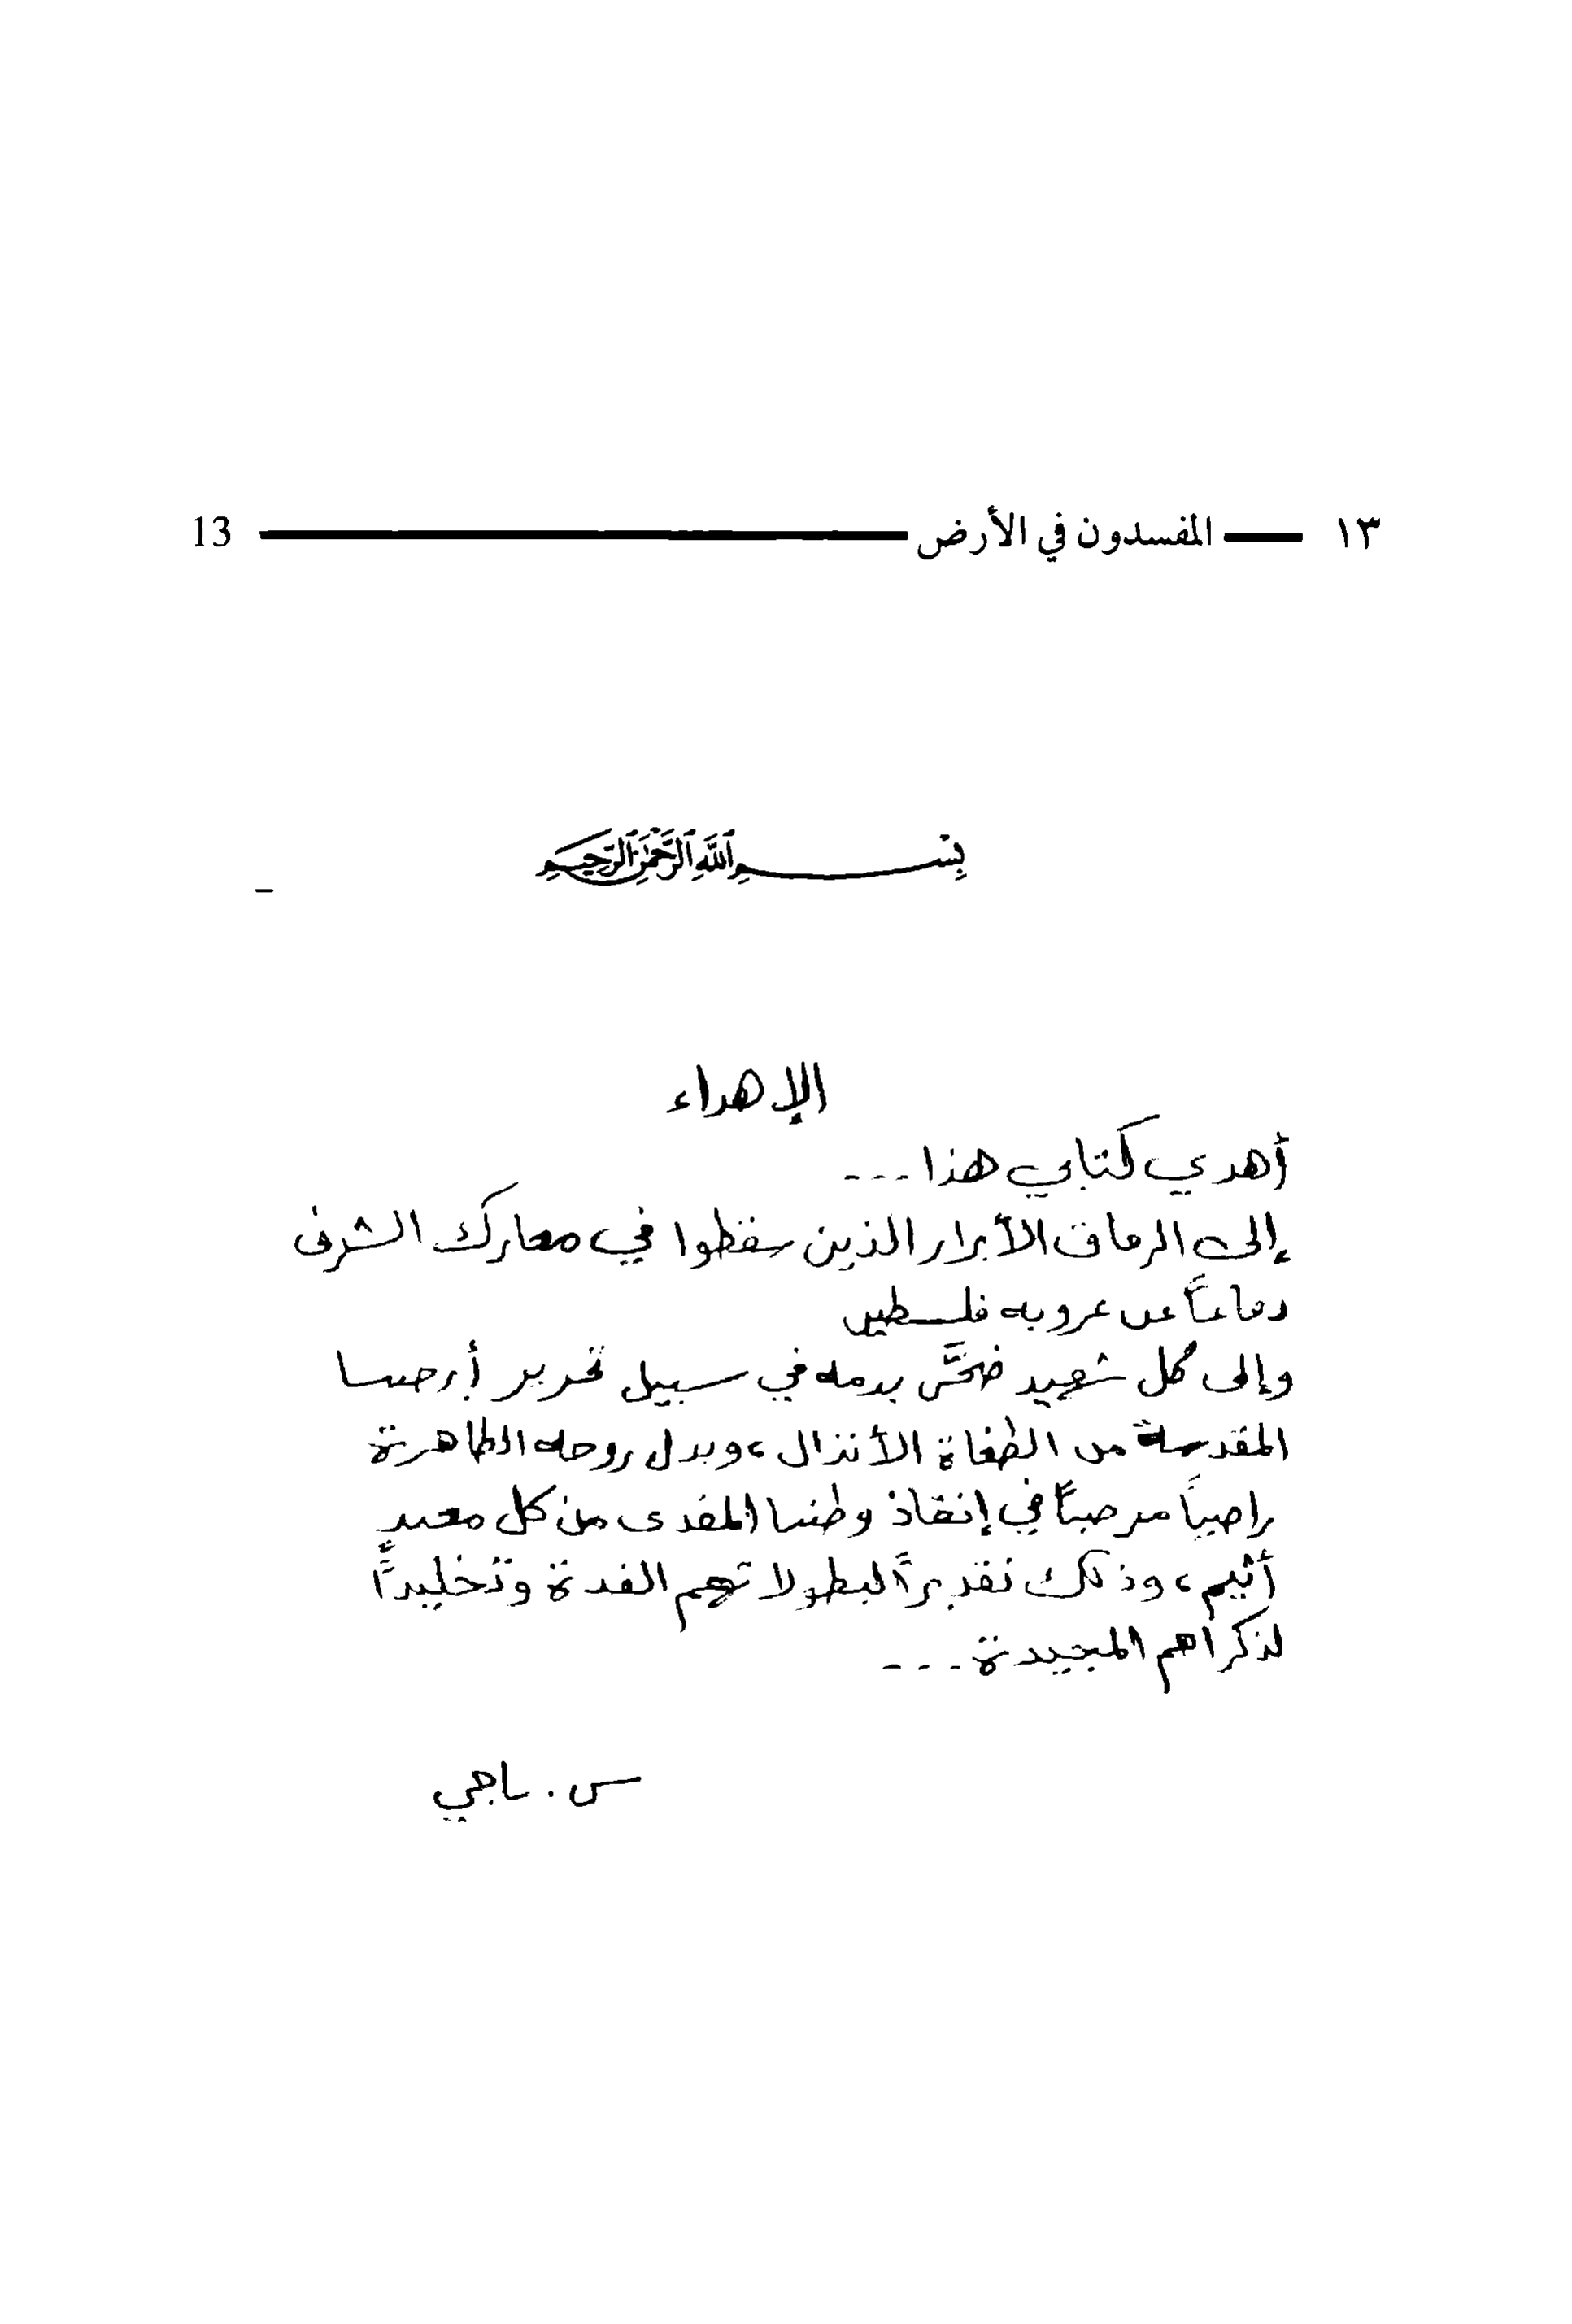 ١٣ المفسدون في الأرض 13
بِسْمِ اللَّهِ الرَّحْمَٰنِ الرَّحِيمِ
الإهداء
أهدي كتابي هذا ...
إلى الرفاق الأبرار الذين سقطوا في معارك الشرف
دفاعاً عن عروبة فلسطين
وإلى كل شهيد ضحَّى بدمه في سبيل تحرير أرضنا
المقدسة من الطغاة الأنذال، وبذل روحه الطاهرة
راضياً مرضياً في إنقاذ وطننا المفدى من كل معتدٍ
أثيم، وذلك تقديراً لبطولاتهم الفذة وتخليداً
لذكراهم المجيدة ...
س. ناجي